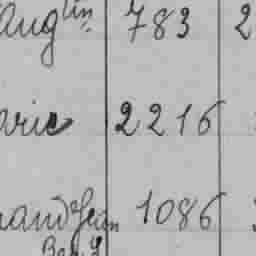 augtin 783 2
arie 2216
nand Jean 1086
Bert